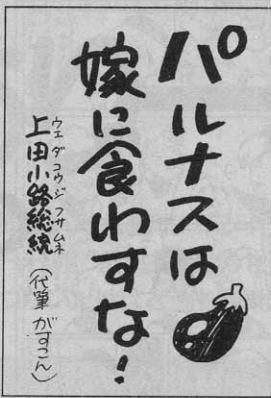 パルナスは
嫁に食わすな!
上田小路総統
ウエダコウジフサムネ
(代筆 がすこん)